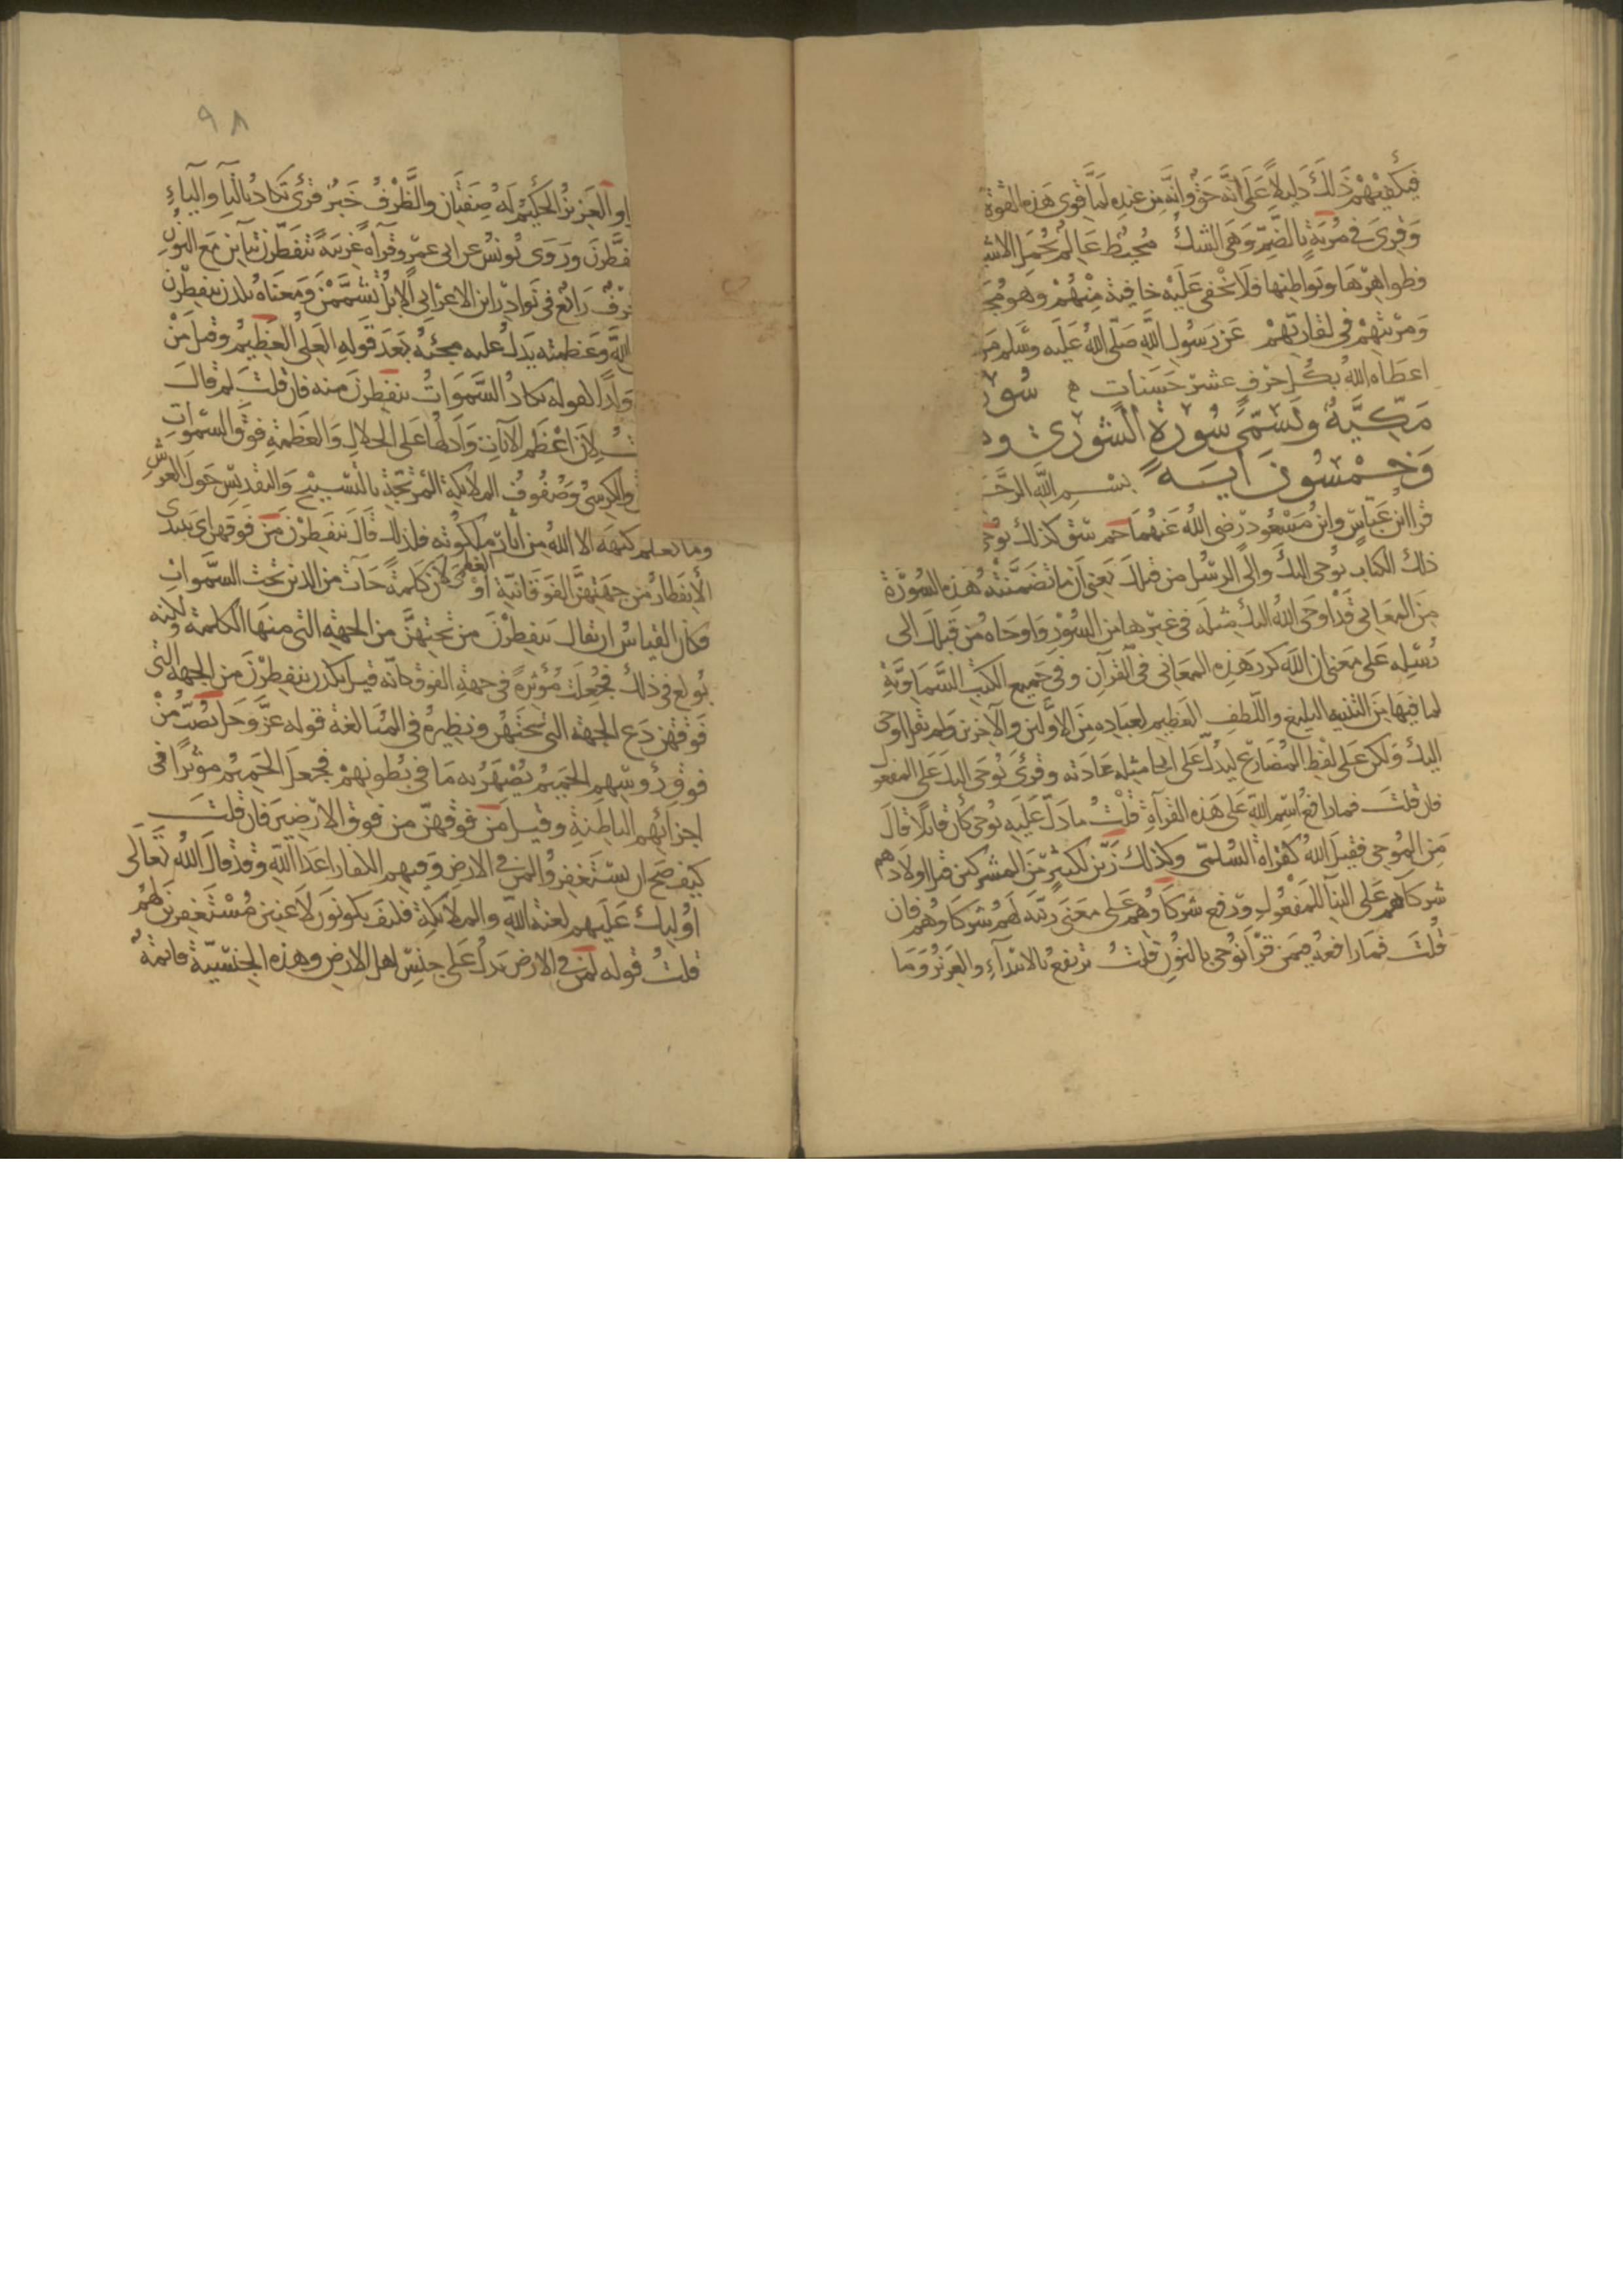 فيكفيهم ذلك دليلا على أنه حق وانه من عنده لما قوى هذه القوة
وقرى في مُرية بالضم وهي الشك محيط عالم بجمل الاشيا
وظواهرها وبواطنها فلا تخفى عليه خافية منهم وهو مج
ومريتهم في لقا ربهم عن رسول الله صلى الله عليه وسلم من
اعطاه الله بكل حرف عشر حسنات ه سور
مكية وتسمى سورة الشورى و
وخمسون آية بسم الله الرح
قرا ابن عباس وابن مسعود رضي الله عنهما حم سق كذلك يوحي
ذلك الكتاب يوحى اليك والى الرسل من قبلك يعني أن ما تضمنته هذه السورة
من المعاني قد اوحى الله اليك مثله في غيرها من السور واوحاه من قبلك الى
رسله على معنى ان الله كرر هذه المعاني في القرآن وفي جميع الكتب السماوية
لما فيها من التنبيه البليغ واللطف العظيم لعباده من الاولين والآخرين ولم يقل اوحى
اليك ولكن على لفظ المضارع ليدل على ان ايحا مثله عادته وقرئ يوحى اليك على المفعول
فان قلت فما رافع اسم الله على هذه القرآة قلت ما دل عليه يوحى كأن قائلا قال
من الموحي فقيل الله كقراة السلمي وكذلك زين لكثير من المشركين قتل اولادهم
شركاهم على البنآ للمفعول ورفع شركاوهم على معنى زينه لهم شركاوهم فان
قلت فما رافعه فيمن قرأ نوحي بالنون قلت يرتفع بالابتدآء والعزيز وما
٩٨
او العزيز الحكيم له صفتان والظرف خبر قرئ تكاد بالتآ واليآء
فطرن وروى يونس عن ابي عمرو قرآة غريبة تتفطرن بتآين مع النون
حرف رائع في نوادر ابن الاعرابي الابل تشممن ومعناه يكدن ينفطرن
الله وعظمته يدل عليه مجيئه بعد قوله العلي العظيم وقيل من
ولدا لقوله تكاد السموات ينفطرن منه فان قلت لم قال
ت لان اعظم الآيات وادلها على الجلال والعظمة فوق السموات
والكرسي وصفوف الملائكة المرتجة بالتسبيح والتقديس حول العرش
وما يعلم كنهه الا الله من آثار ملكوته فلذلك قال ينفطرن من فوقهن اى يبتدى
الأنفطار من جهتهن الفوقانية او لان كلمة الكفر جآت من الذين تحت السموات
وكان القياس ان يقال ينفطرن من تحتهن من الجهة التي منها الكلمة ولكنه
بولغ في ذلك فجعلت مؤثرة في جهة الفوق كانه قيل يكدن ينفطرن من الجهة التي
فوقهن دع الجهة التي تحتهن ونظيره في المبالغة قوله عز وجل يصب من
فوق رؤسهم الحميم يصهر به ما في بطونهم فجعل الحميم مؤثرا في
اجزائهم الباطنة وقيل من فوقهن من فوق الارضين فان قلت
كيف صح ان يستغفروا لمن في الارض وفيهم الكفار اعدآ الله وقد قال الله تعالى
اوليك عليهم لعنة الله والملائكة فكيف يكونون لاعنين مستغفرين لهم
قلت قوله لمن في الارض يدل على جنس اهل الارض وهذه الجنسية قائمة